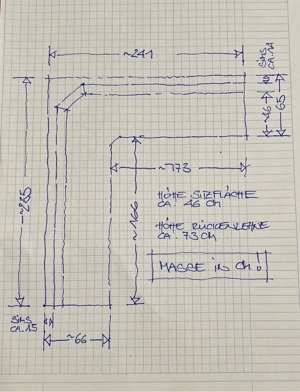 ~241
SIMS
CA. 14
~46
65
~173
~235
~166
HÖHE SIZFLÄCHE
CA. 46 CM
HÖHE RÜCKENLEHNE
CA. 73 CM
MASSE in CM!
SIMS
CA. 15
~66